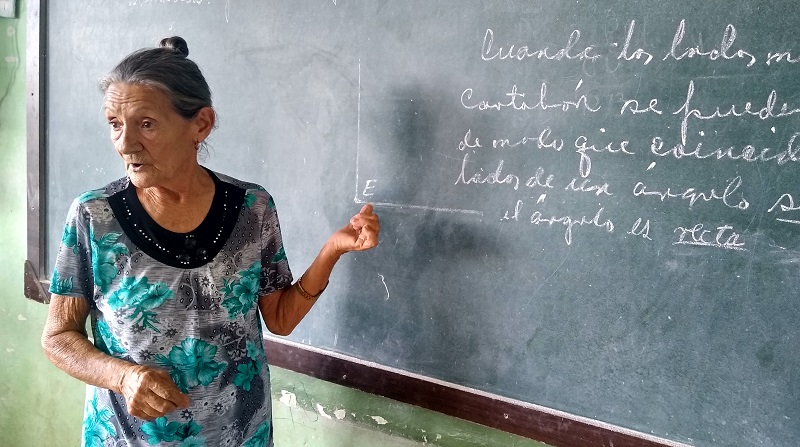 Cuando los lados m
Cartabón se puede
de modo que coincid
lados de un ángulo s
el ángulo es recta
E